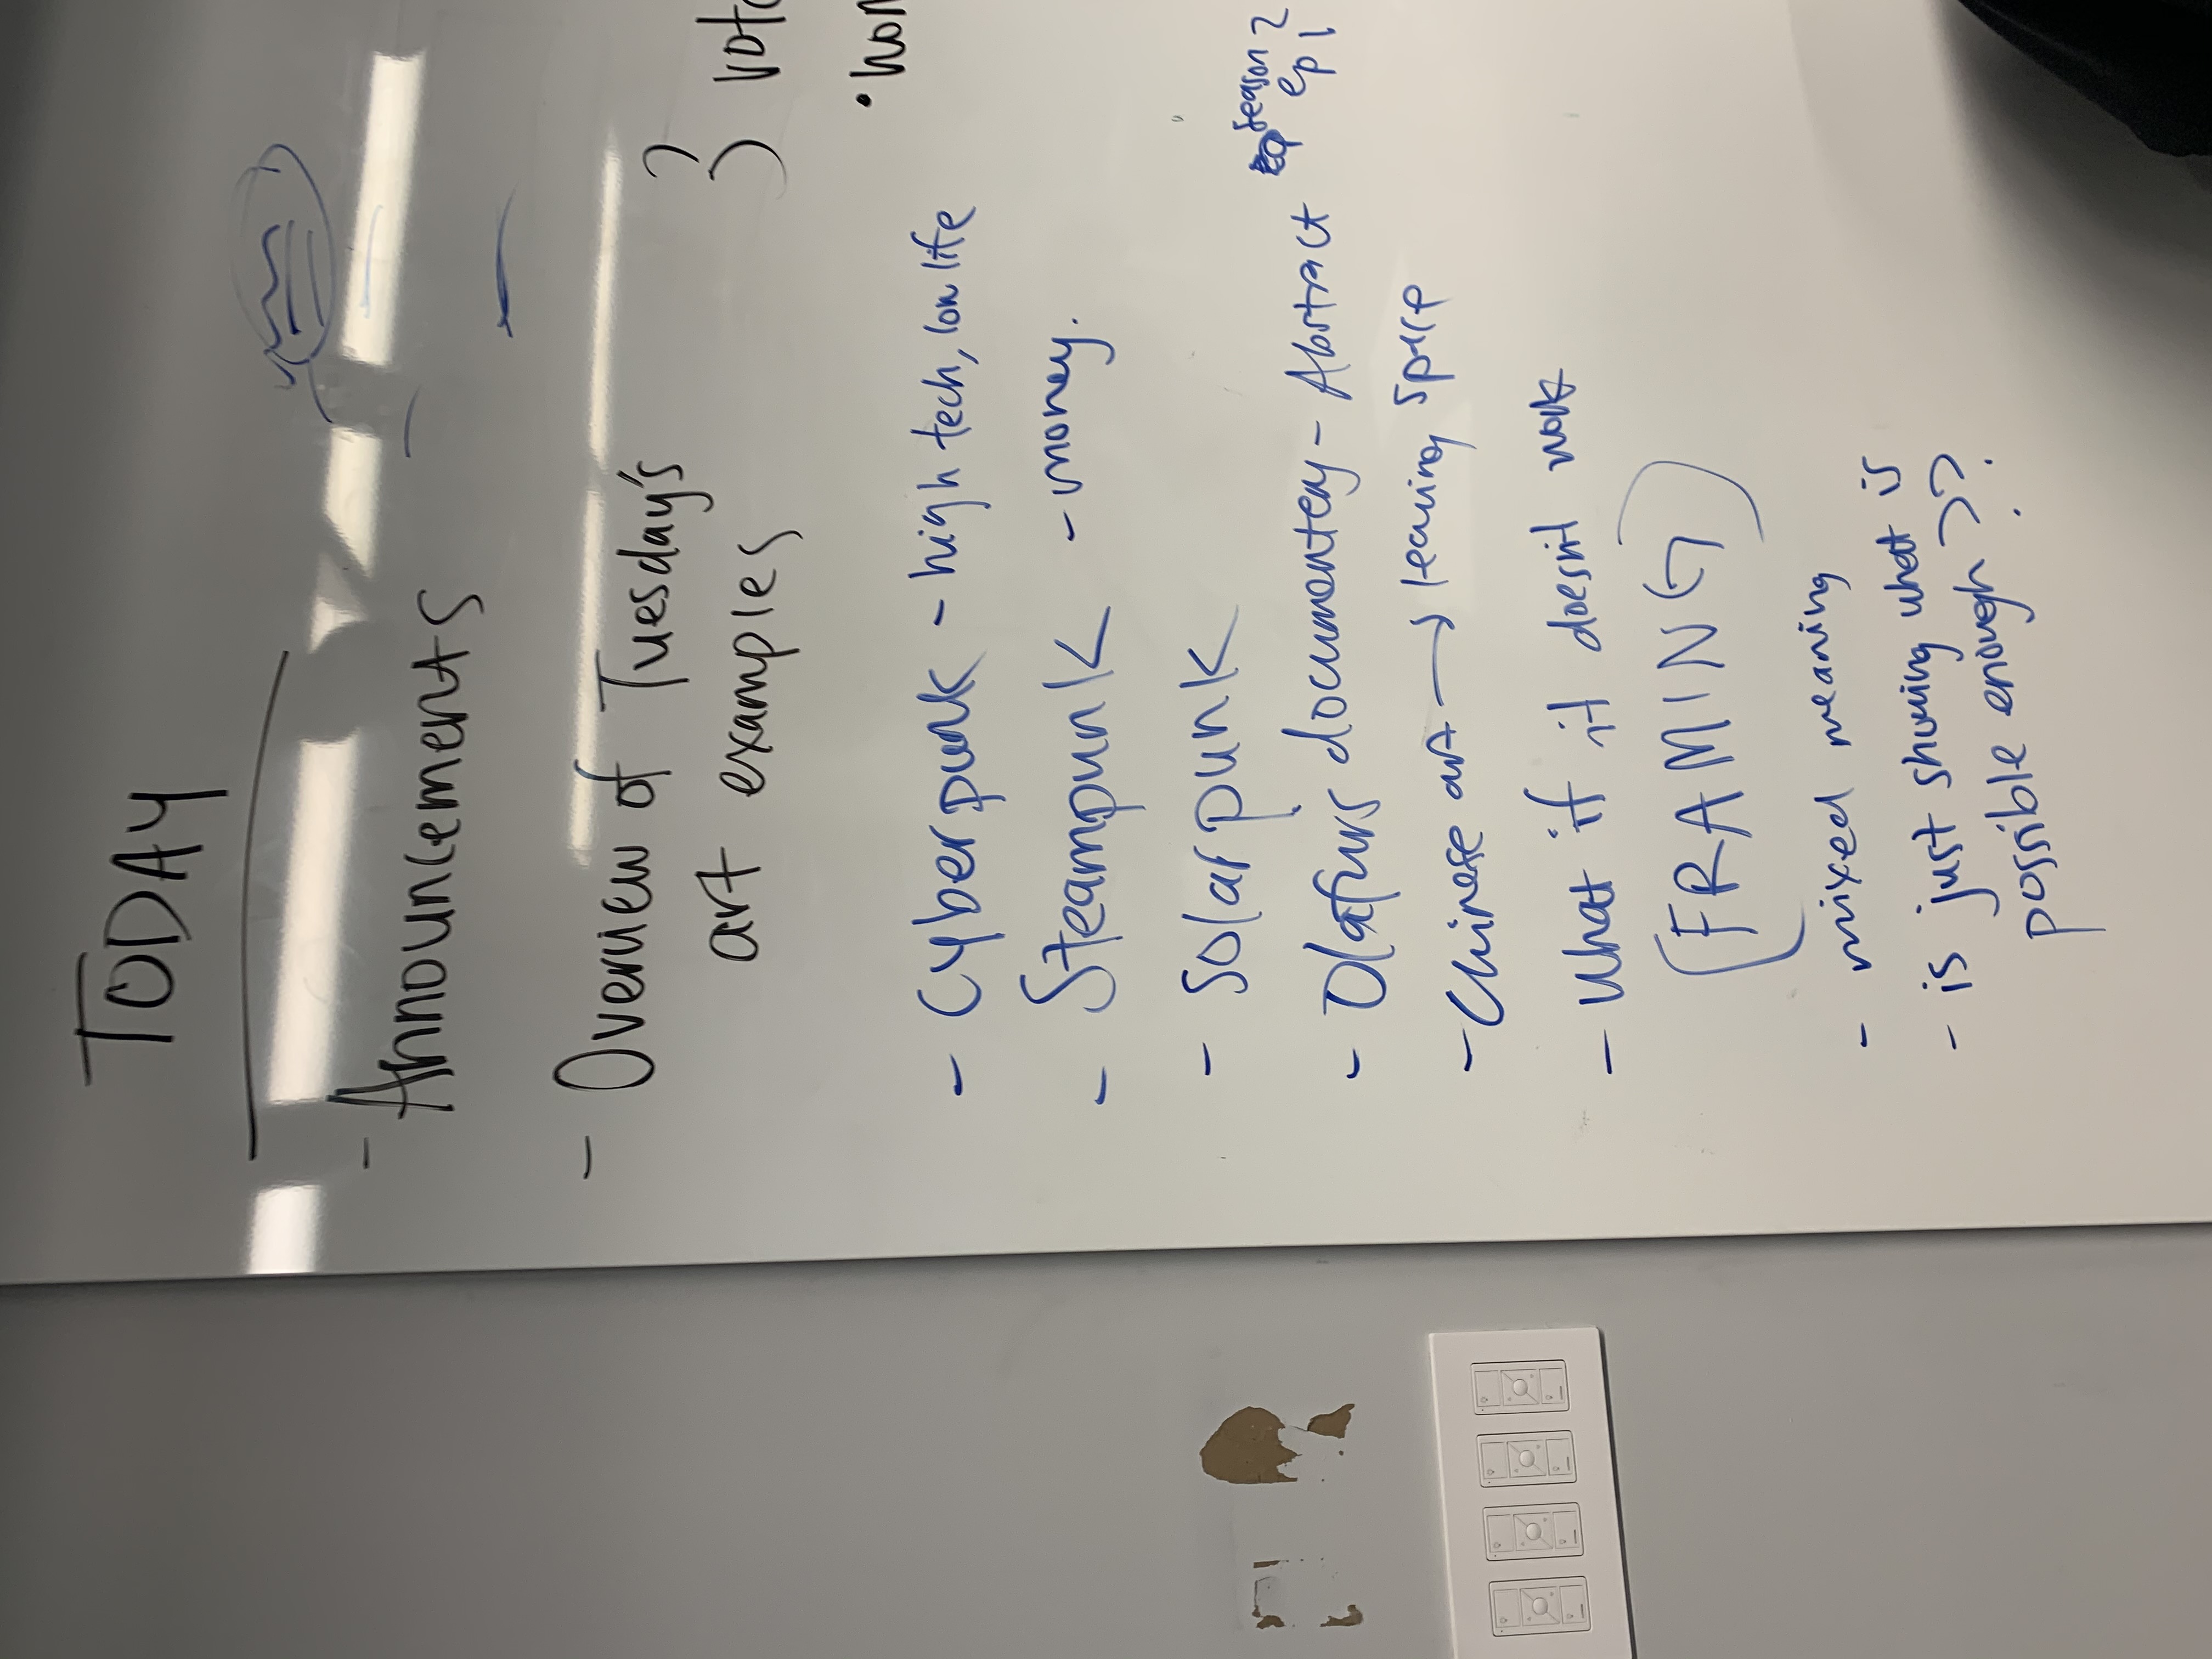 TODAY
- Announcements
- Overview of Tuesday's
art examples
- Cyberpunk - high tech, low life
- Steampunk - money.
- Solarpunk
- Olafurs documentery - Abstract season 2
ep 1
- Chinese art → leaving space
- What if it doesn't work
(FRAMING)
- mixed meaning
- is just showing what is
possible enough??